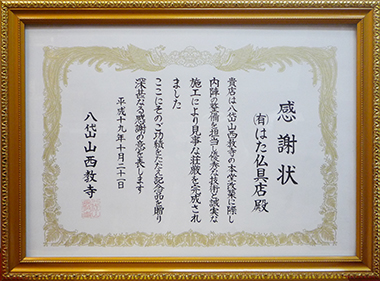 感謝状
㈲はた仏具店殿
貴店は八岱山西教寺の本堂改築に際し
内陣の整備を担当し優秀な技術と誠実な
施工により見事な荘厳を完成され
ました
ここにそのご功績をたたえ記念品を贈り
深甚なる感謝の意を表します
平成十九年十月二十一日
八岱山西教寺